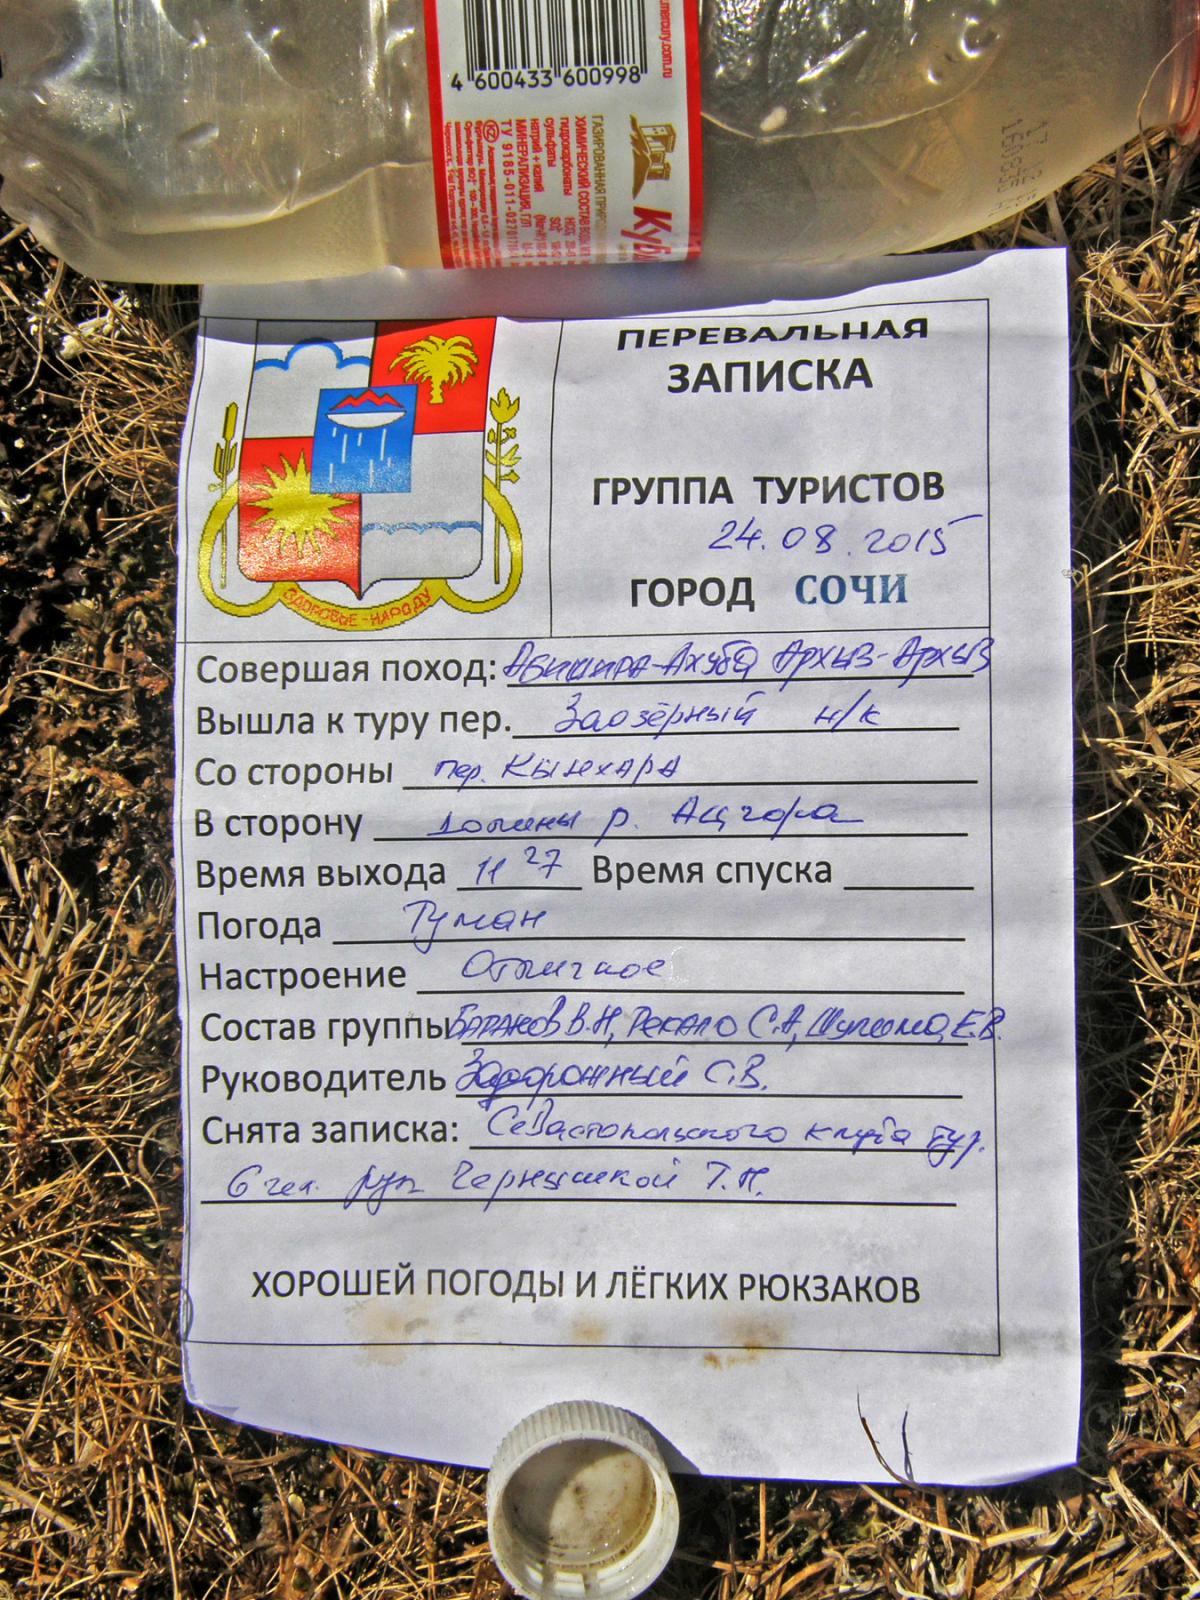 4 600433 600998
mercury.com.ru
ГАЗИРОВАННАЯ
ХИМИЧЕСКИЙ СОСТАВ ВОДЫ
гидрокарбонаты
сульфаты
натрий + калий
МИНЕРАЛИЗАЦИЯ, Г/Л
ТУ 9185-011-
ПЕРЕВАЛЬНАЯ
ЗАПИСКА
ГРУППА ТУРИСТОВ
24.08.2015
ГОРОД СОЧИ
ЗДОРОВЬЕ - НАРОДУ
Совершая поход: Абишира-Ахуба Архыз-Архыз
Вышла к туру пер. Заозёрный н/к
Со стороны пер. Кынхара
В сторону долины р. Ацгара
Время выхода 11 27 Время спуска
Погода Туман
Настроение Отличное
Состав группы Баранов В.Н, Рекало С.А, Е.В.
Руководитель Задорожный С.В.
Снята записка: Севастопольского клуба тур.
6 чел. рук Т.Н.
ХОРОШЕЙ ПОГОДЫ И ЛЁГКИХ РЮКЗАКОВ